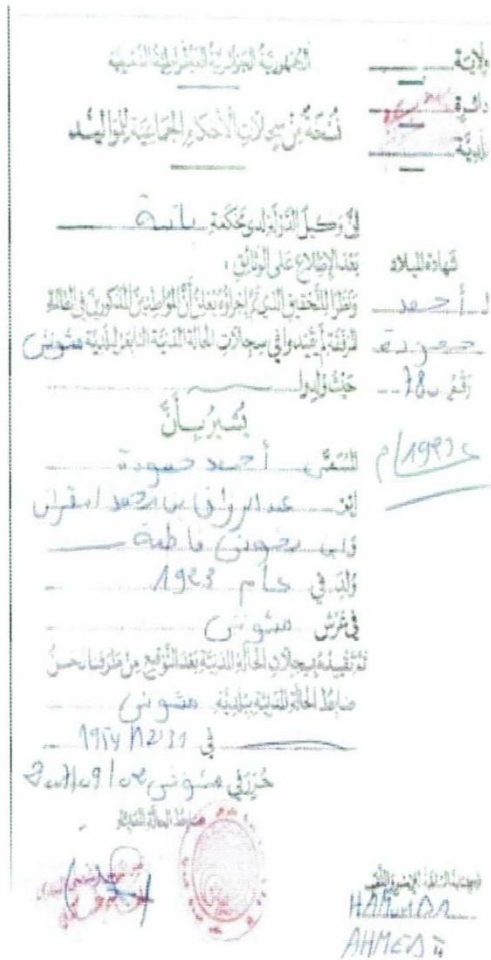 الجمهورية الجزائرية الديمقراطية الشعبية
نسخة من سجلات الأحكام الجماعية للمواليد
ولاية
دائرة
بلدية
إن وكيل الدولة لدى محكمة باتنة
بعد الإطلاع على الوثائق :
ونظرا للتحقيق الذي تم إجراؤه يعلن أن المواطنين المذكورين في القائمة
المرفقة لم يقيدوا في سجلات الحالة المدنية التابعة لبلدية مشونش
حيث ولدوا
يشير بأن
المسمى أحمد حمودة
إبن عبد الرزاق بن محمد أمقران
و لـ فاطمة
ولد في عام 1923
في عرش مشونش
تم تقييده بسجلات الحالة المدنية بعد التوقيع من طرفنا نحن
ضابط الحالة المدنية ببلدية مشونش
في
حرر في مشونش
ضابط الحالة المدنية
شهادة الميلاد
لـ أحمد
حمودة
رقم 78
HAMOUDA
AHMED